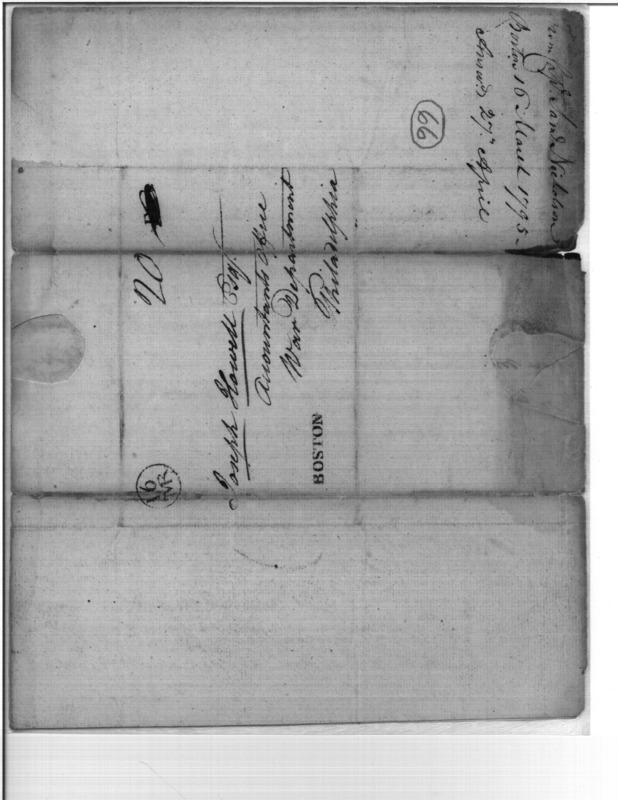 from Saml Nicholson
Boston 16 March 1795-
Answd 27th April
66
20
Joseph Howell Esqr.
Accountants Office
War Department
Philadelphia
BOSTON
16
MR